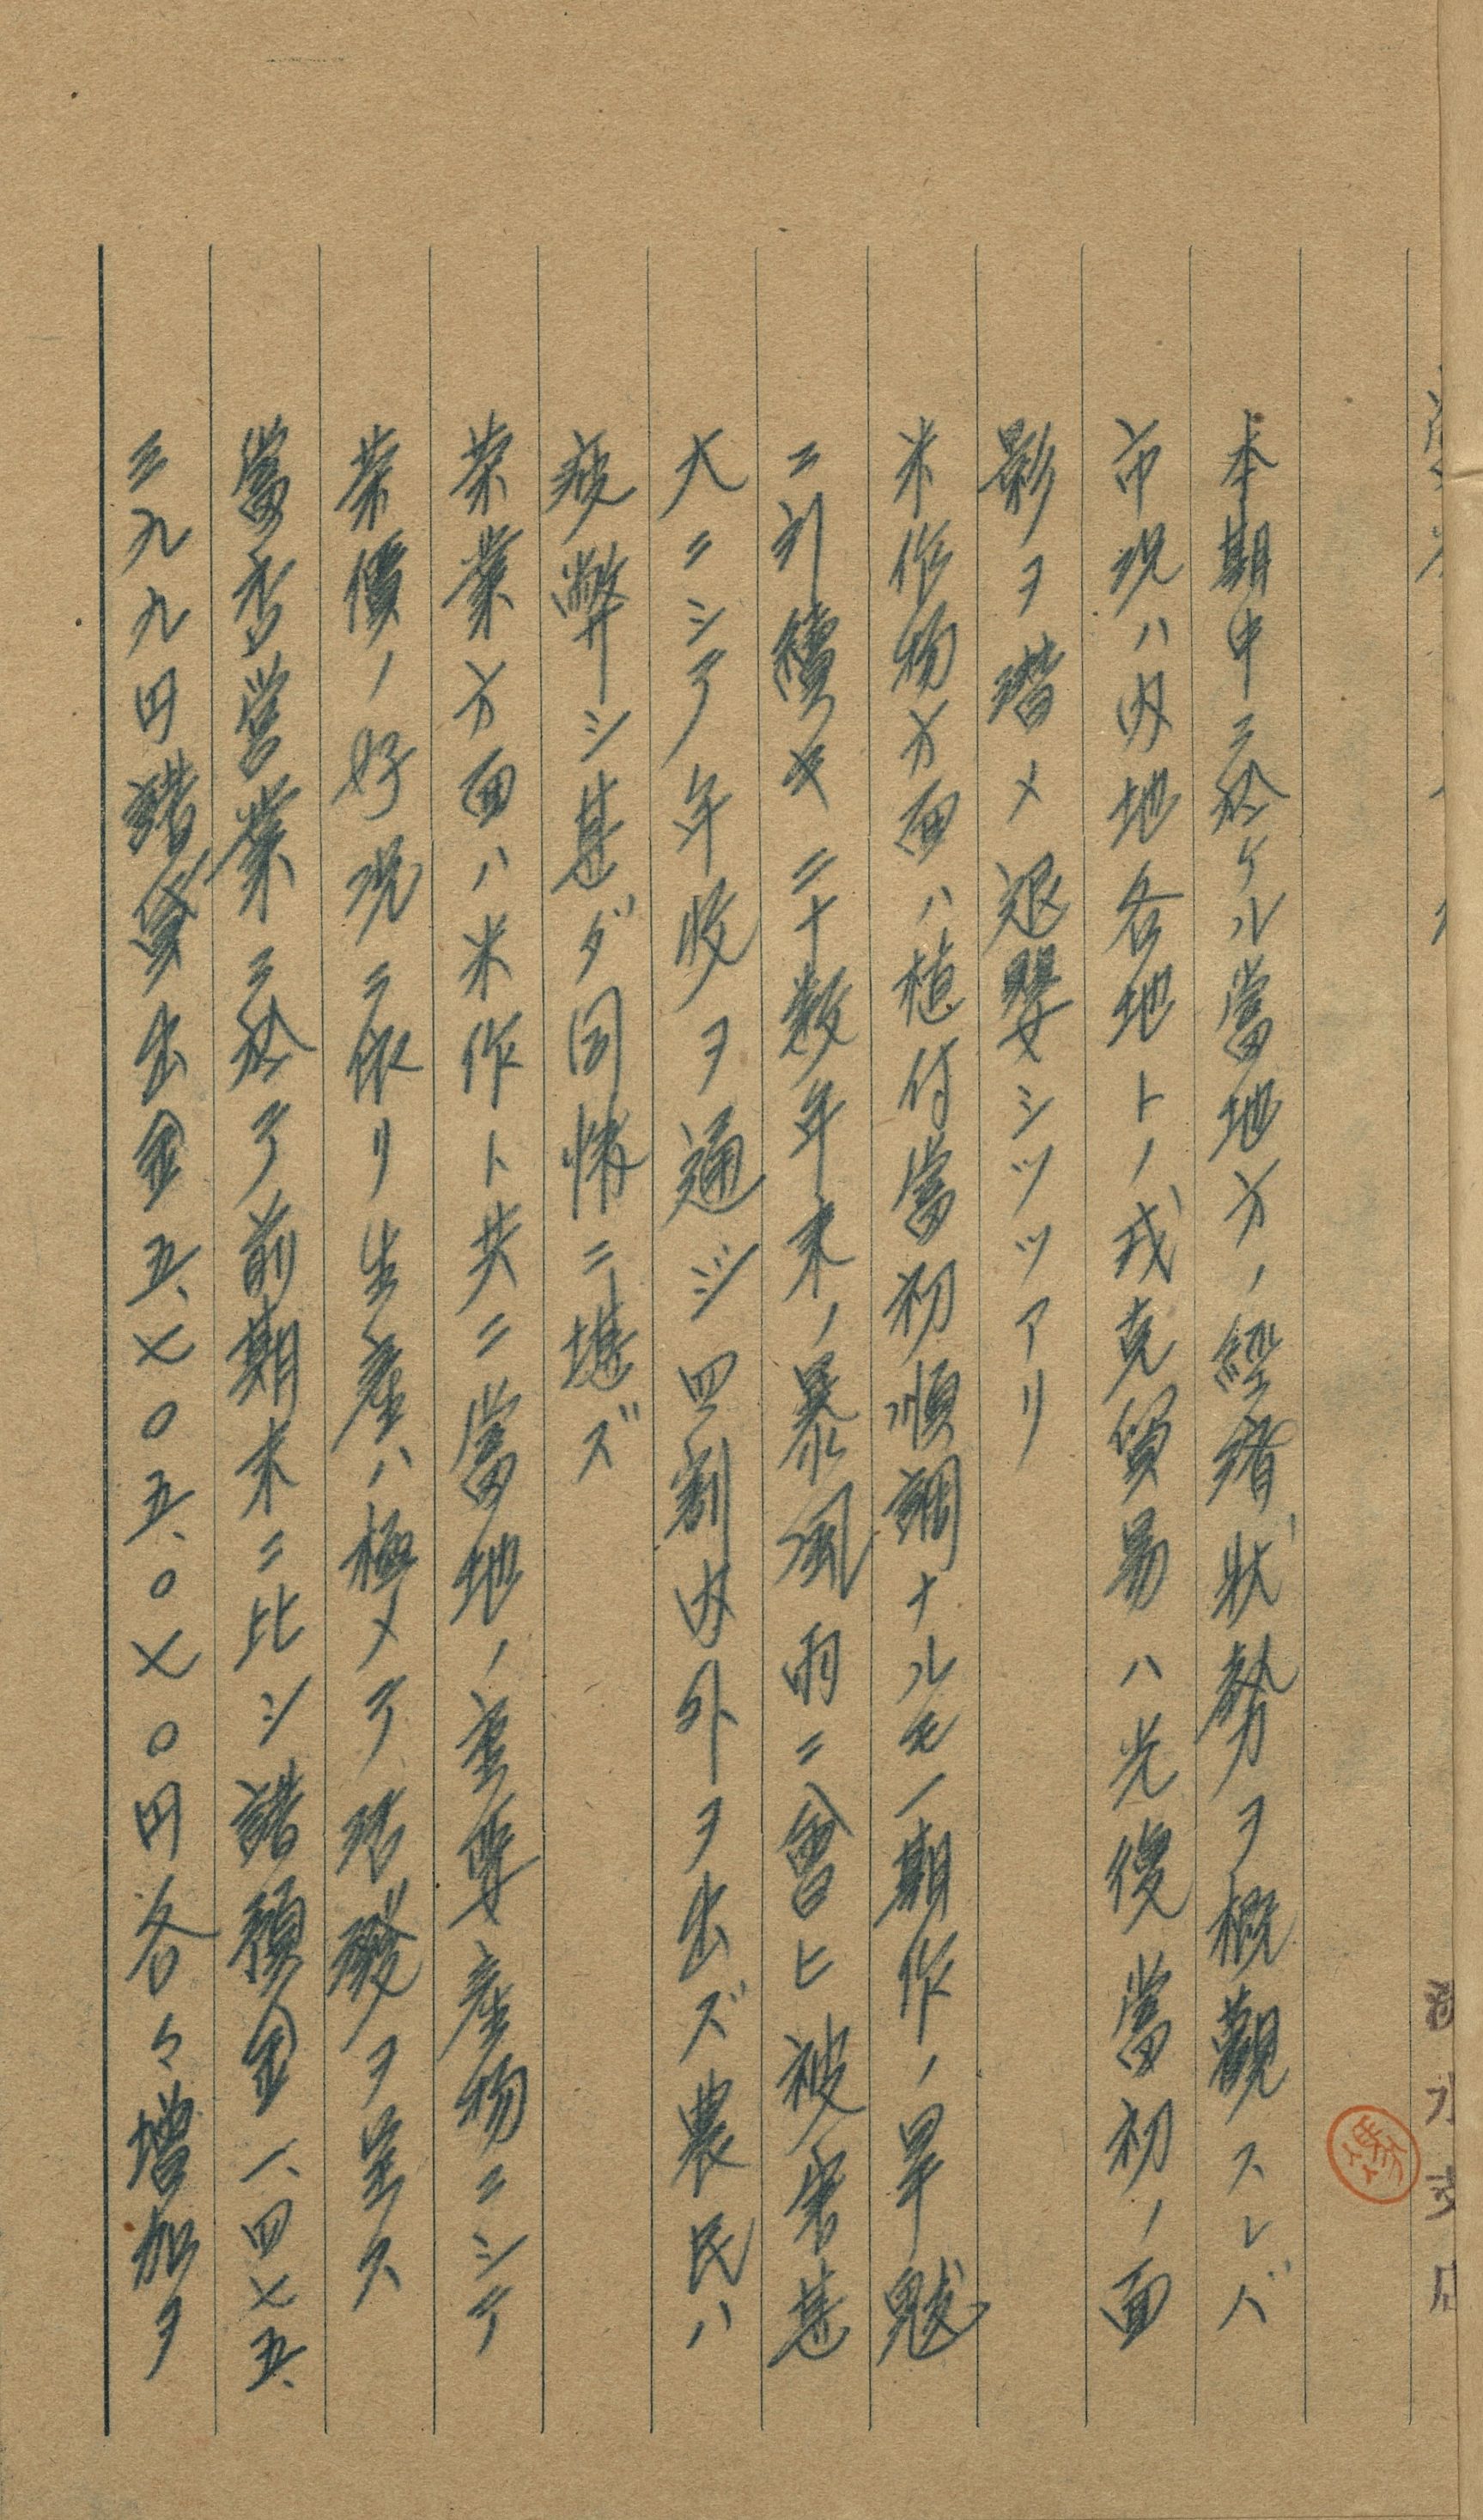 本期中ニ於ケル當地方ノ經濟狀勢ヲ概觀スレバ
市況ハ內地各地トノ戎克貿易ハ光復當初ノ面
影ヲ潜メ退嬰シツツアリ
米作物方面ハ植付當初順調ナルモ一期作ノ旱魃
ニ引續キ二十數年来ノ暴風雨ニ會ヒ被害甚
大ニシテ年收ヲ通ジ四割內外ヲ出ズ農民ハ
疲弊シ甚ダ同情ニ堪ズ
茶業方面ハ米作ト共ニ當地ノ重要產物ニシテ
茶價ノ好況ニ依リ生產ハ極メテ活發ヲ呈ス
當店営業ニ於テ前期末ニ比シ諸預金一、四七五、
三九九円諸貸出金五、七〇五、〇七〇円各々增加ヲ
淡水支店